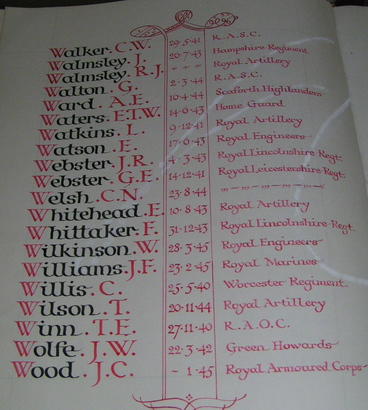 Walker. C.W. 29·5·41 R.A.S.C.
Walmsley. J. 20·7·43 Hampshire Regiment
Walmsley. R.J. - - - Royal Artillery
Walton. G. 2·3·44 R.A.S.C.
Ward. A.E. 10·4·44 Seaforth Highlanders
Waters. E.T.W. 14·6·43 Home Guard
Watkins. L. 9·12·41 Royal Artillery
Watson. E. 4·3·43 Royal Engineers
Webster. J.R. 14·6·43 Royal Lincolnshire Regt.
Webster. G.E. 14·12·41 Royal Leicestershire Regt.
Welsh. C.N. 23·8·44 -"-"-"-"-"-
Whitehead. E. 10·8·43 Royal Artillery
Whittaker. F. 31·12·43 Royal Lincolnshire Regt.
Wilkinson. W. 28·3·45 Royal Engineers
Williams. J.F. 23·2·45 Royal Marines
Willis. C. 25·5·40 Worcester Regiment.
Wilson. T. 20·11·44 Royal Artillery
Winn. T.E. 27·11·40 R.A.O.C.
Wolfe. J.W. 22·3·42 Green Howards
Wood. J.C. - 1·45 Royal Armoured Corps